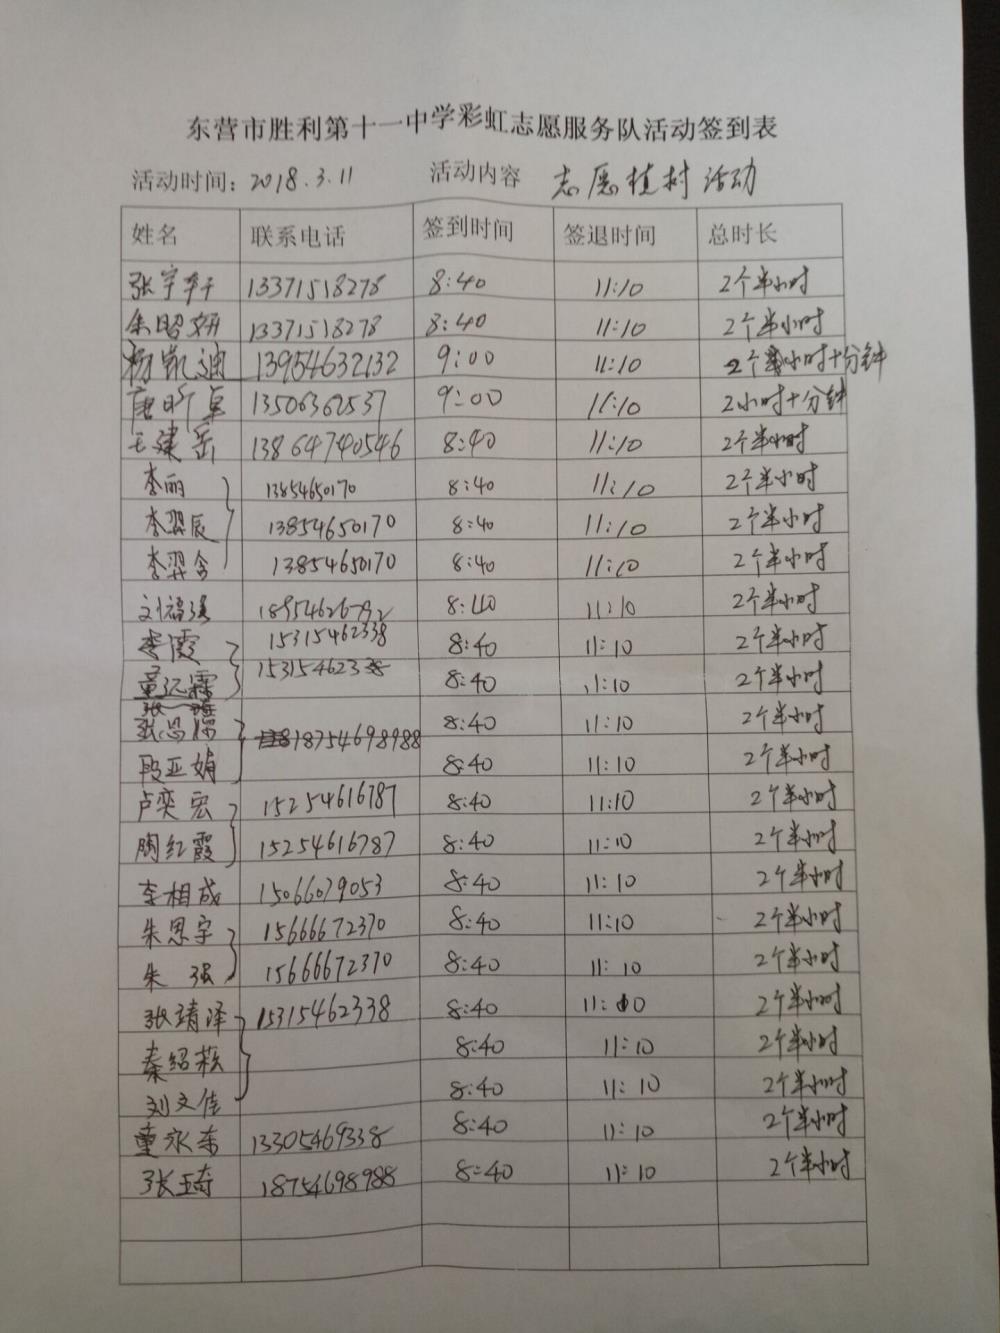 东营市胜利第十一中学彩虹志愿服务队活动签到表
活动时间：2018.3.11 活动内容 志愿植树活动
姓名 联系电话 签到时间 签退时间 总时长
张宇轩 13371518278 8:40 11:10 2个半小时
朱昭妍 13371518278 8:40 11:10 2个半小时
杨凯迪 13954632132 9:00 11:10 2小时十分钟
唐昕卓 13506362537 9:00 11:10 2小时十分钟
王建岳 13864740546 8:40 11:10 2个半小时
李丽 13854650170 8:40 11:10 2个半小时
李羿辰 13854650170 8:40 11:10 2个半小时
李羿含 13854650170 8:40 11:10 2个半小时
刘福强 8:40 11:10 2个半小时
李霞 15315462338 8:40 11:10 2个半小时
董沅霖 15315462338 8:40 11:10 2个半小时
张 18754698988 8:40 11:10 2个半小时
段亚娟 8:40 11:10 2个半小时
卢奕宏 15254616787 8:40 11:10 2个半小时
陶红霞 15254616787 8:40 11:10 2个半小时
李相成 15066079053 8:40 11:10 2个半小时
朱思宇 15666672370 8:40 11:10 2个半小时
朱强 15666672370 8:40 11:10 2个半小时
张靖泽 15315462338 8:40 11:10 2个半小时
秦绍 8:40 11:10 2个半小时
刘文佳 8:40 11:10 2个半小时
董永东 13305469338 8:40 11:10 2个半小时
张玉奇 18754698988 8:40 11:10 2个半小时